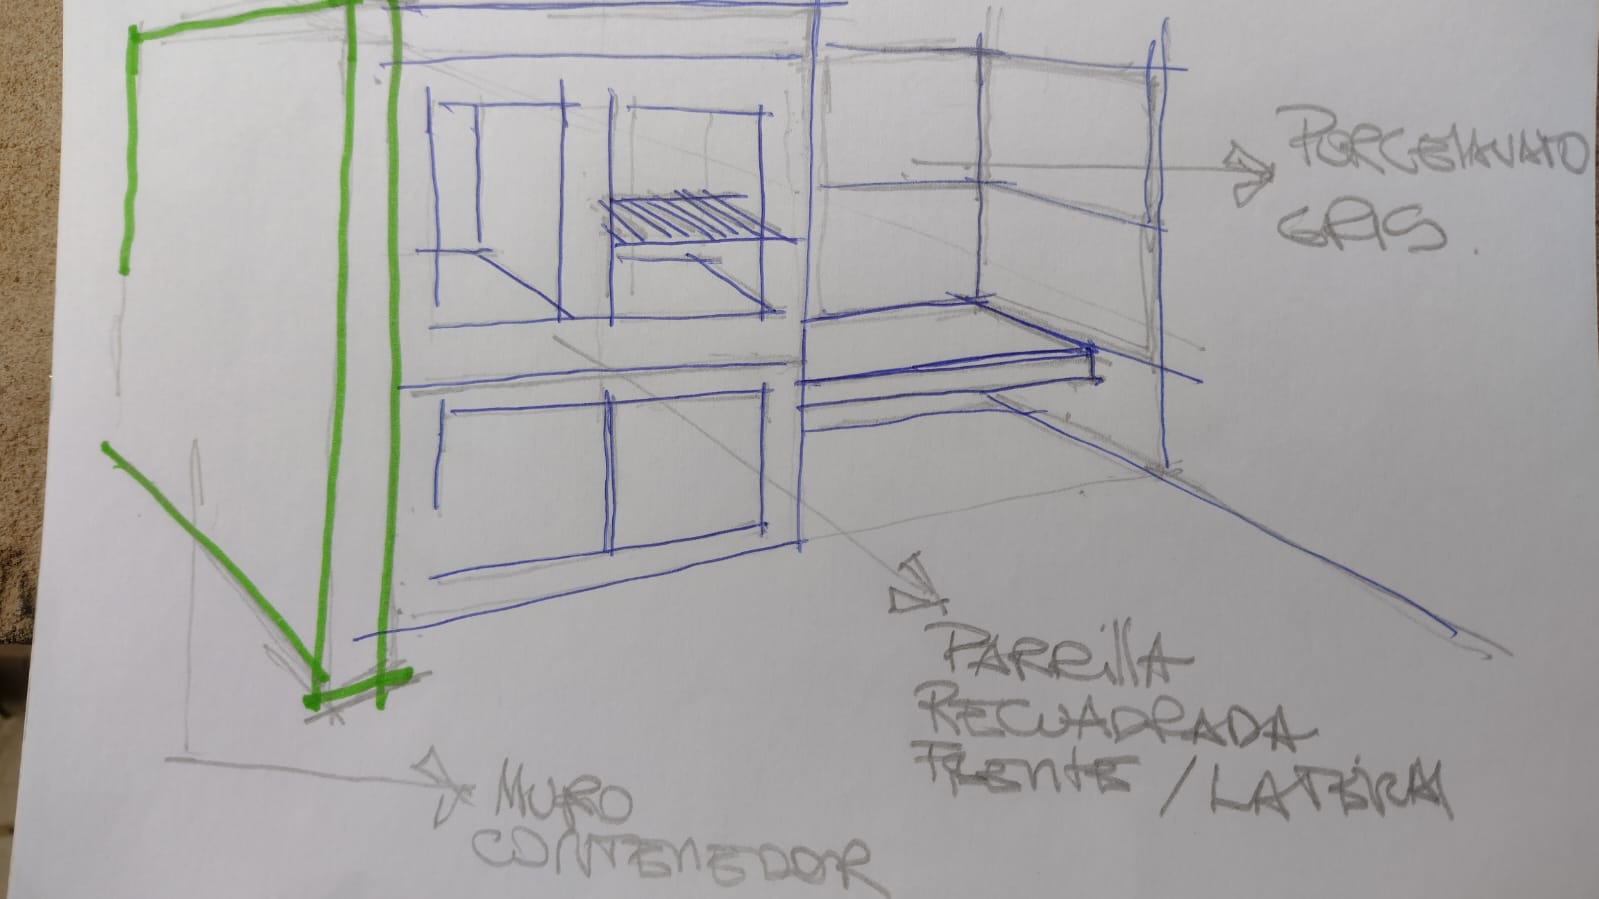 PORCELANATO
GRIS.
PARRillA
RECUADRADA
FRENTE / LATERAl
MURO
CONTENEDOR